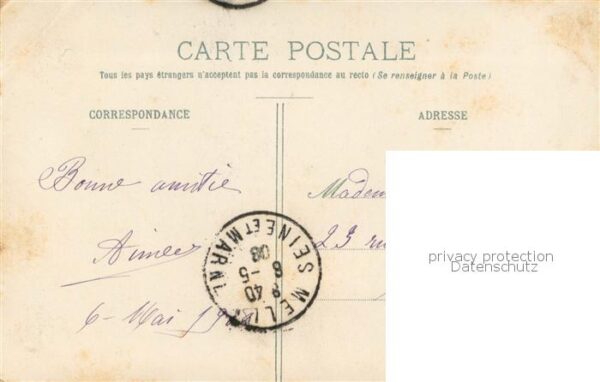 CARTE POSTALE
Tous les pays étrangers n'acceptent pas la correspondance au recto (Se renseigner à la Poste)
CORRESPONDANCE
ADRESSE
Bonne amitié
Aimée
6 - Mai 1908
Madem
23 ru
SEINE ET MARNE
8 40
6 - 5
08
privacy protection
Datenschutz